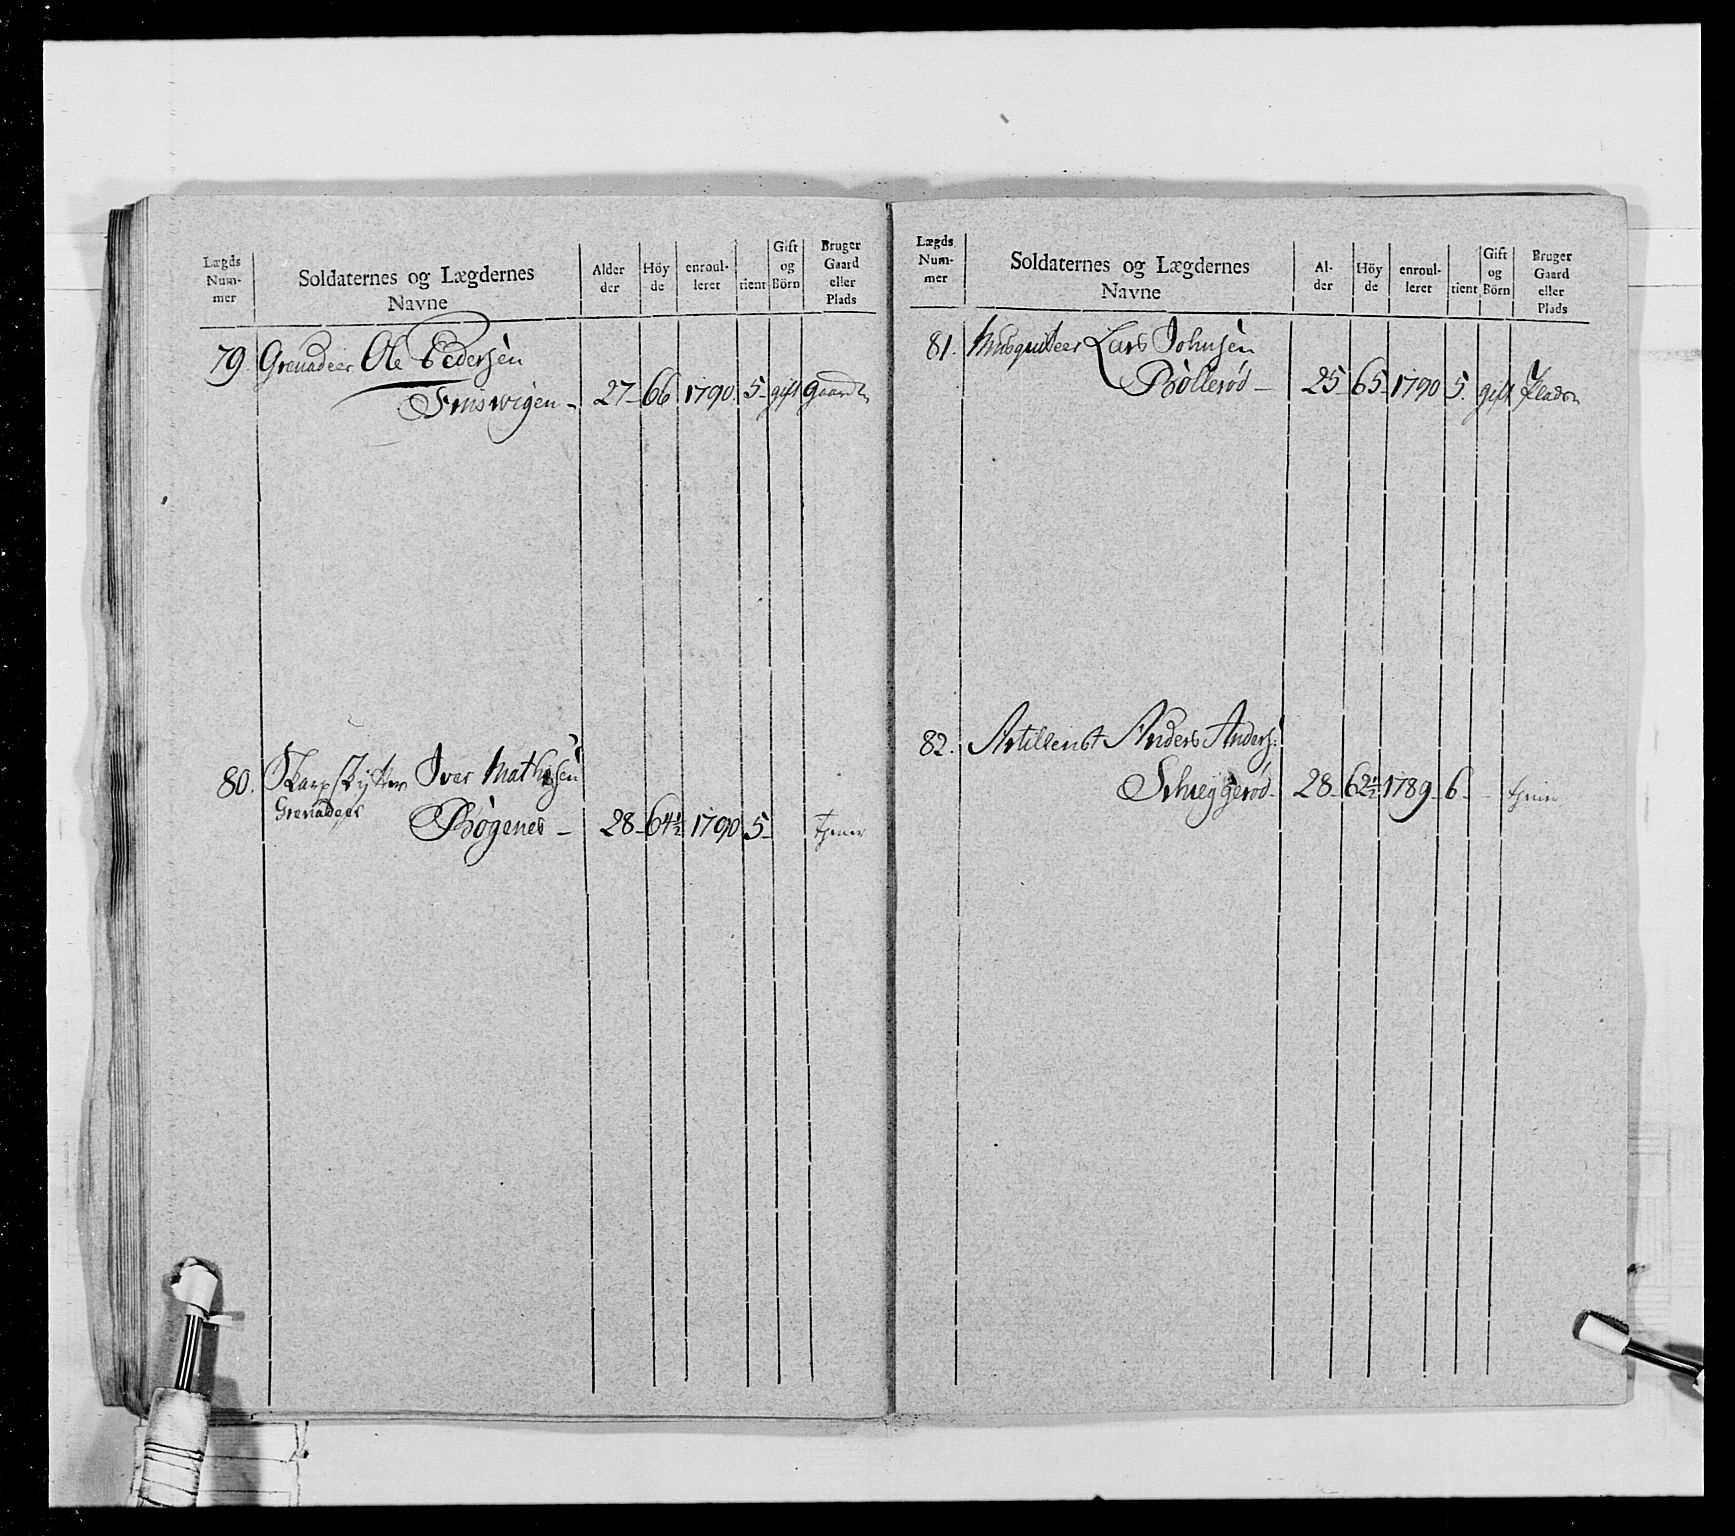 Lægds Num- mer | Soldaternes og Lægdernes Navne | Alder der | Höy de | enroul- leret | tient | Gift og Börn | Bruger Gaard eller Plads
79. Grenadeer Ole Pedersen
Friswigen - 27 - 66 1790. 5 - gift Gaarden
80. Skarpskytter Iver Mathisen
Grenadeer Bøgenes - 28 - 64½ 1790 5 - tjener
Lægds Num- mer | Soldaternes og Lægdernes Navne | Al- der | Höy de | enroul- leret | tient | Gift og Börn | Bruger Gaard eller Plads
81. Musquiteer Lars Johnsen
Bøllerød - 25 - 65 - 1790 5. gift Pladsn
82. Artillerist Anders Anders:
28 - 62½ 1789 - 6 - - tjener